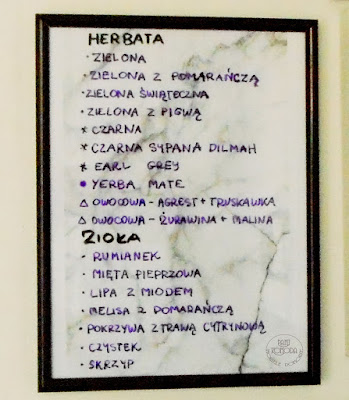 HERBATA
• ZIELONA
• ZIELONA Z POMARAŃCZĄ
• ZIELONA ŚWIĄTECZNA
• ZIELONA Z PIGWĄ
* CZARNA
* CZARNA SYPANA DILMAH
* EARL GREY
• YERBA MATE
△ OWOCOWA - AGREST + TRUSKAWKA
△ OWOCOWA - ŻURAWINA + MALINA
ZIOŁA
• RUMIANEK
• MIĘTA PIEPRZOWA
• LIPA Z MIODEM
• MELISA Z POMARAŃCZĄ
• POKRZYWA Z TRAWĄ CYTRYNOWĄ
• CZYSTEK
• SKRZYP